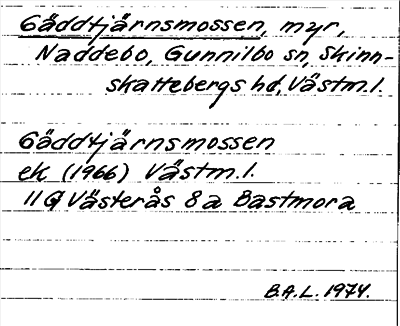 Gäddtjärnsmossen, myr,
Naddebo, Gunnilbo sn, Skinn-
skattebergs hd, Västm.l.
Gäddtjärnsmossen
ek (1966) Västm.l.
11G Västerås 8a Bastmora
B.A.L. 1974.